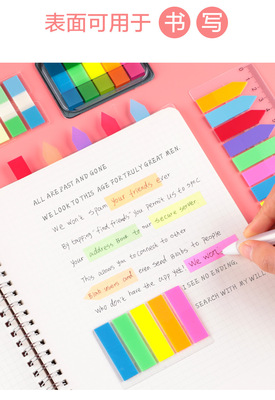 表面可用于 书 写
ALL ARE PAST AND GONE
WE LOOK TO THIS AGE FOR TRULY GREAT MEN.
We won't spam your friends ever
By tapping find friends you permit us to sync
Your address book to our secure server.
This allows you to connect to other
Bind users and even send Binds to people We won
who don't have the app yet! I SEE NO ENDING,
SEARCH WITH MY WILL